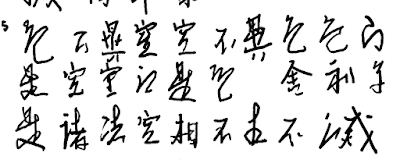 色不異空空不異色色即
是空空即是色 舍利子
是諸法空相不生不滅